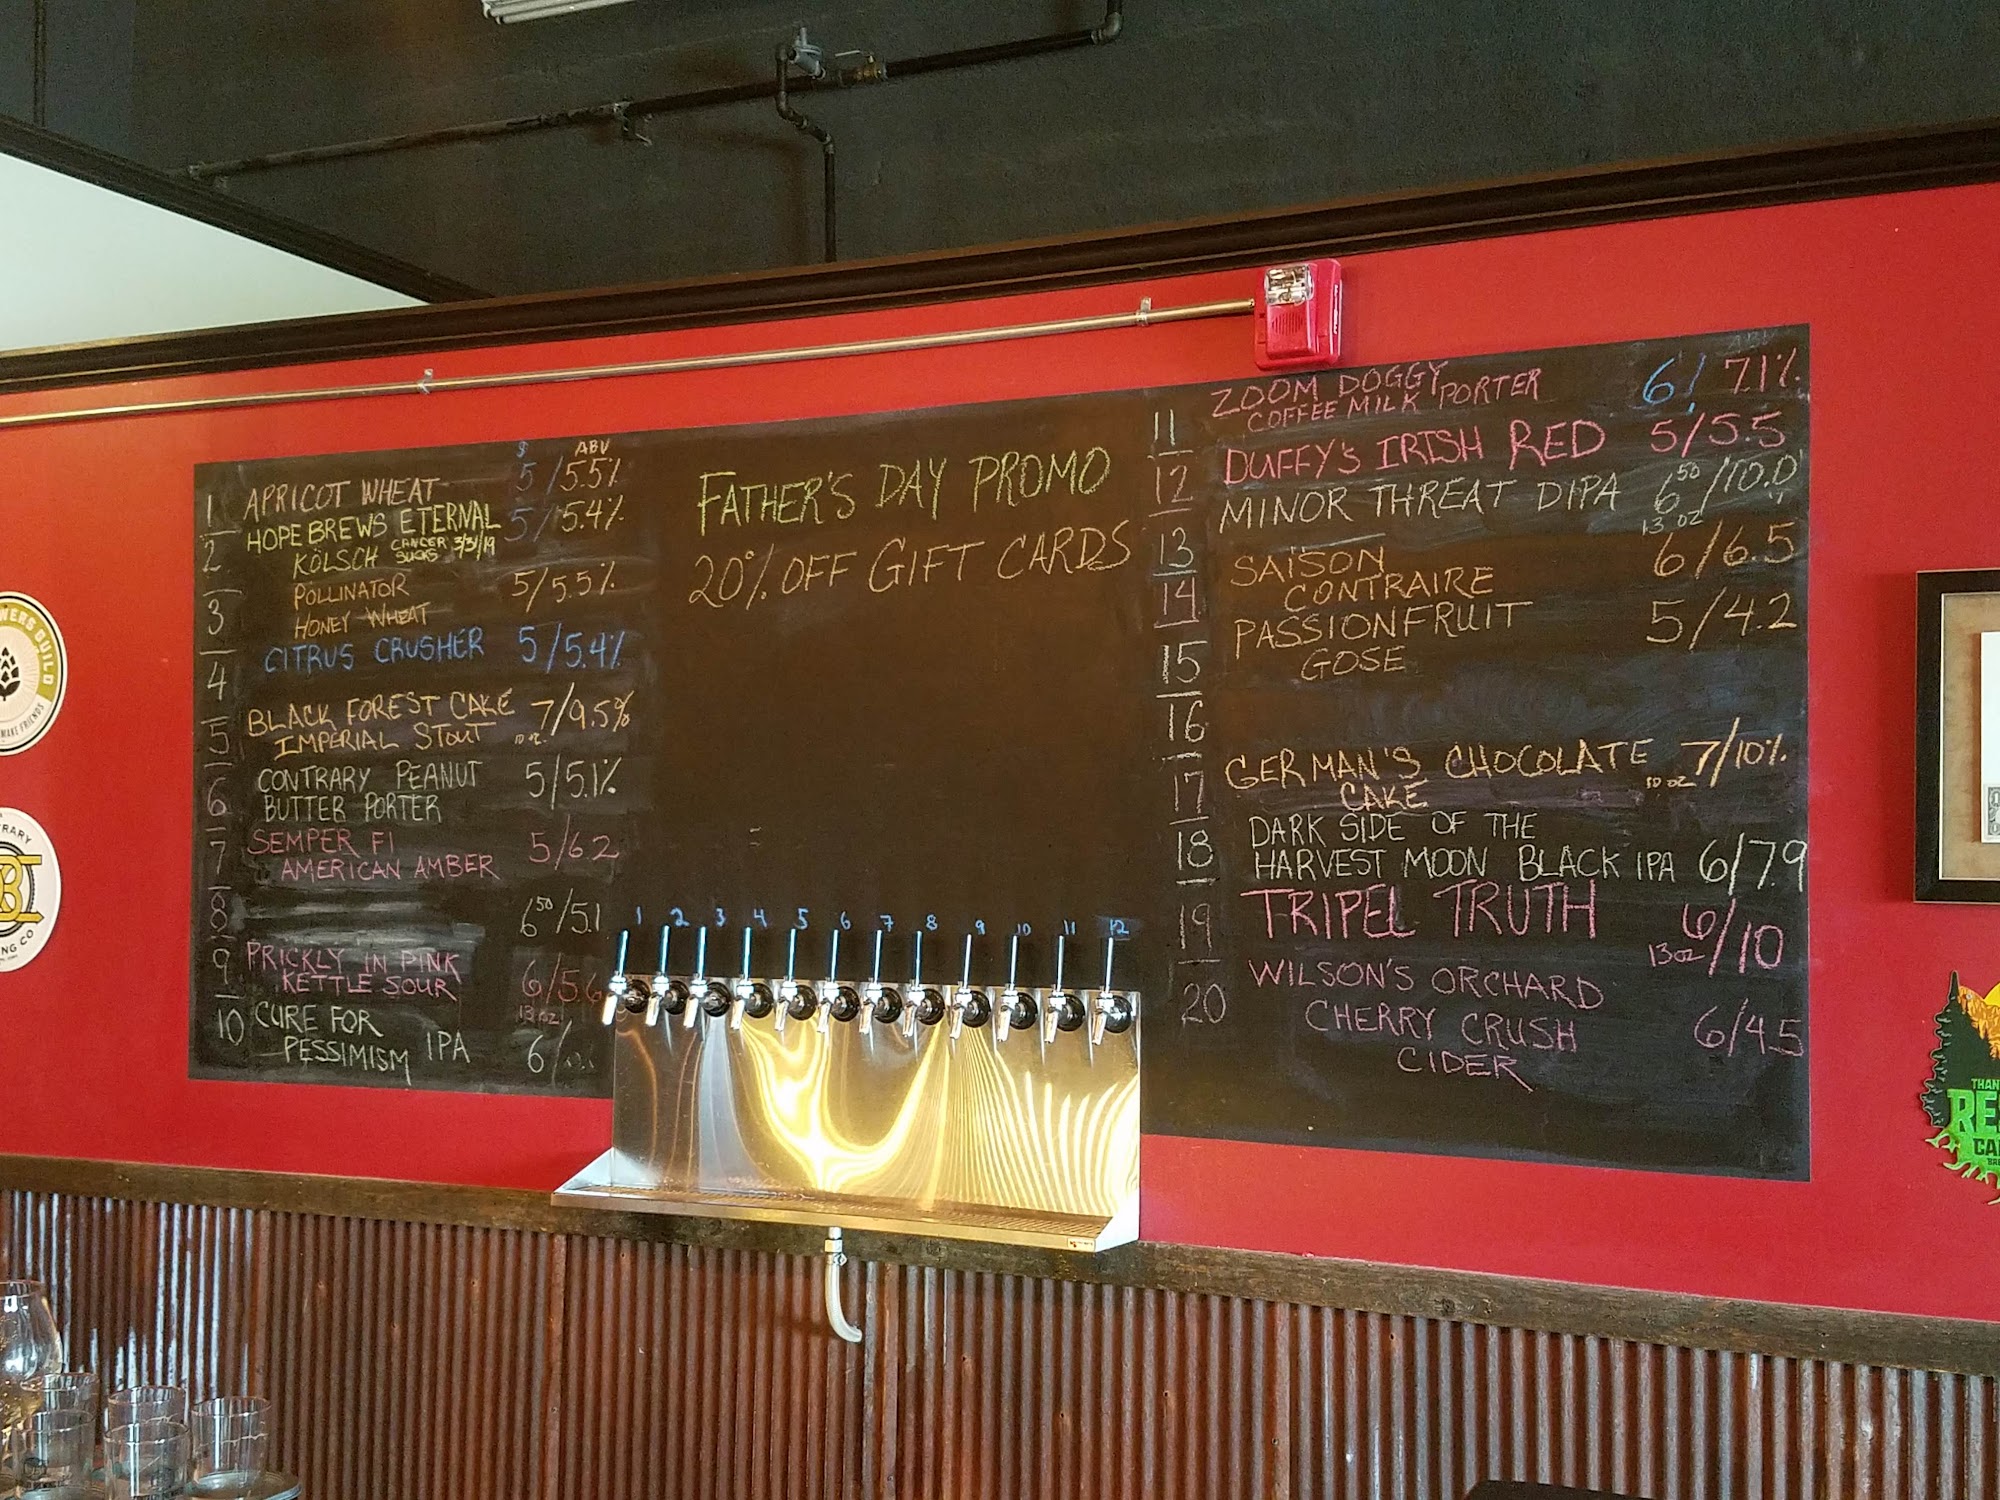 $ ABV
1 APRICOT WHEAT 5/5.5%
2 HOPE BREWS ETERNAL 5/5.4%
KÖLSCH CANCER SUCKS 3/31/19
3 POLLINATOR 5/5.5%
HONEY WHEAT
4 CITRUS CRUSHER 5/5.4%
5 BLACK FOREST CAKE 7/9.5%
IMPERIAL STOUT 10 OZ.
6 CONTRARY PEANUT 5/5.1%
BUTTER PORTER
7 SEMPER FI 5/6.2
AMERICAN AMBER
8 6 50/5.1
9 PRICKLY IN PINK 6/5.6
KETTLE SOUR 13 OZ
10 CURE FOR
PESSIMISM IPA 6/
FATHER'S DAY PROMO
20% OFF GIFT CARDS
1 2 3 4 5 6 7 8 9 10 11 12
ABV
11 ZOOM DOGGY 6/7.1%
COFFEE MILK PORTER
12 DUFFY'S IRISH RED 5/5.5
13 MINOR THREAT DIPA 6 50/10.0
13 OZ
14 SAISON 6/6.5
CONTRAIRE
15 PASSIONFRUIT 5/4.2
GOSE
16
17 GERMAN'S CHOCOLATE 7/10%
CAKE 10 OZ
18 DARK SIDE OF THE
HARVEST MOON BLACK IPA 6/7.9
19 TRIPEL TRUTH 6/10
13 OZ
20 WILSON'S ORCHARD
CHERRY CRUSH 6/4.5
CIDER
WERS GUILD
MAKE FRIENDS
RARY
ING CO
THAN
RES
CA